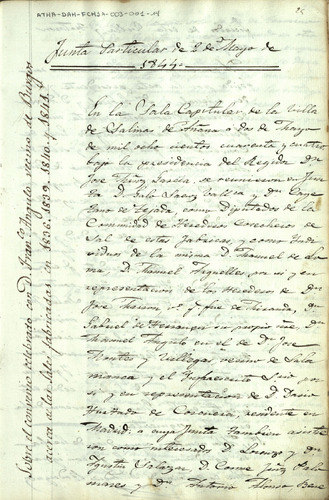 ATHA-DAH-FCHSA-003-001-14
Junta Particular de 2 de Mayo de
1844.
Sobre el convenio celebrado con D. Franco. Angulo vecino de Burgos
acerca a las sales fabricadas en 1838, 1839, 1840 y 1841.
En la Sala Capitular de la Villa
de Salinas de Añana a dos de Mayo
de mil ocho cientos cuarenta y cuatro
bajo la presidencia del Regidor Dn.
Jose García, se reunieron en Junta
D. Pablo Saenz y Dn. Caye
tano de Tejada, como Diputados de la
Comunidad de Herederos cosecheros de
Sal de estas fabricas, y como indi
viduos de la misma D. Manuel de
D. Manuel Arguelles, por si y en
representacion de los Herederos de Dn.
Jose
Gabriel de su propio nombre Dn.
Manuel Angulo en el de D. Jose
Montes y Villegas vecino de Sala
manca y el
por si, y en representacion de D.
Hurtado de Corcuera, residente en
Madrid: a cuya Junta tambien asistie
ron como interesados D. Lorenzo y Dn.
Agustin Salazar, D. Cosme Palo
mares y Dn. Antonio Alonso